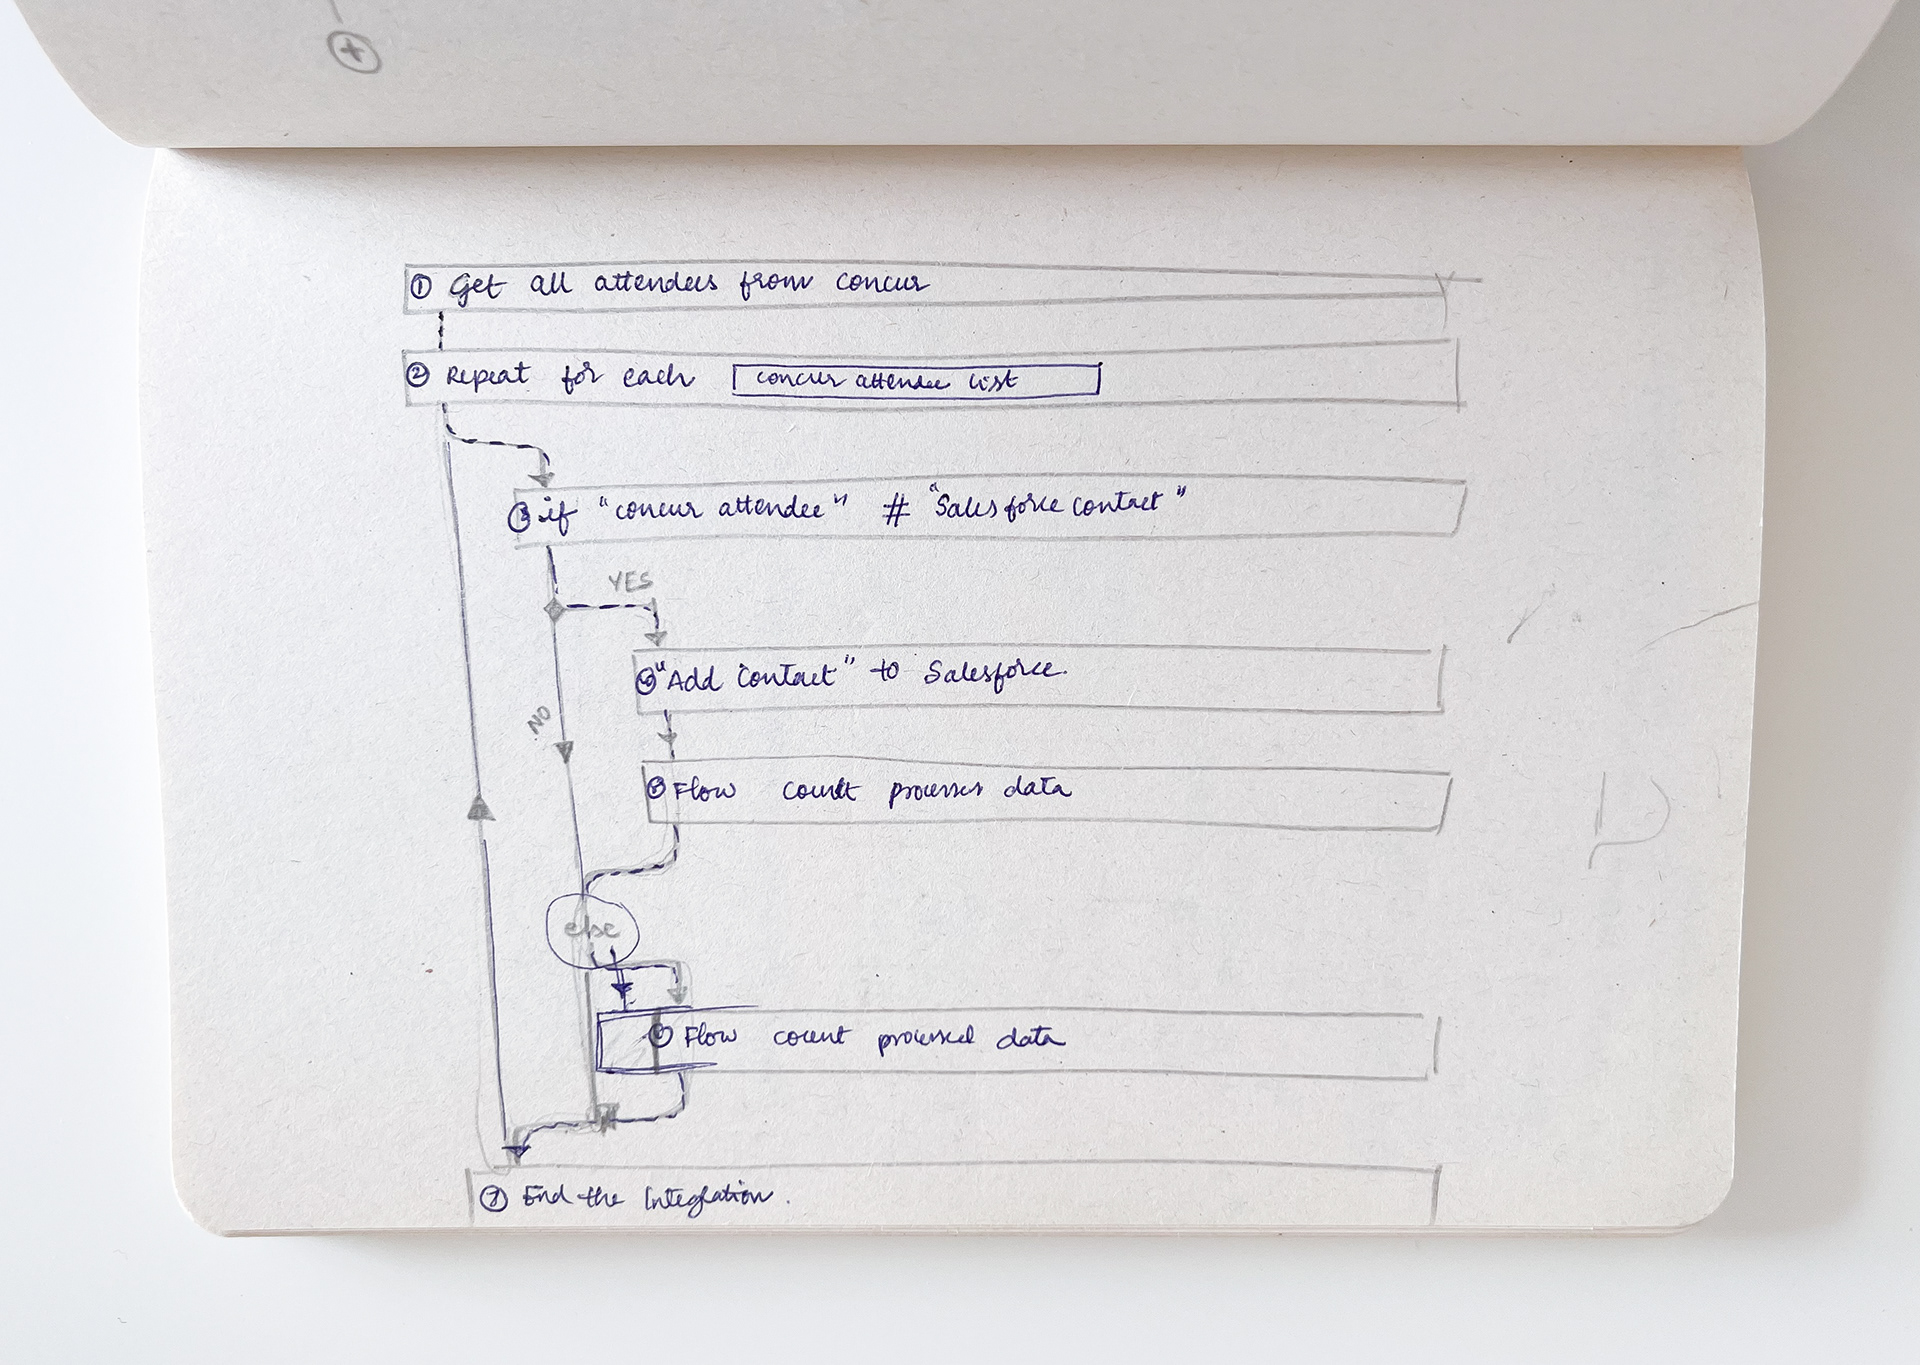 ① Get all attendees from concur
② Repeat for each concur attendee list
③ if "concur attendee" # "Salesforce contact"
YES
④ "Add contact" to Salesforce.
NO
⑤ Flow count processes data
else
⑥ Flow count processed data
⑦ End the Integration.